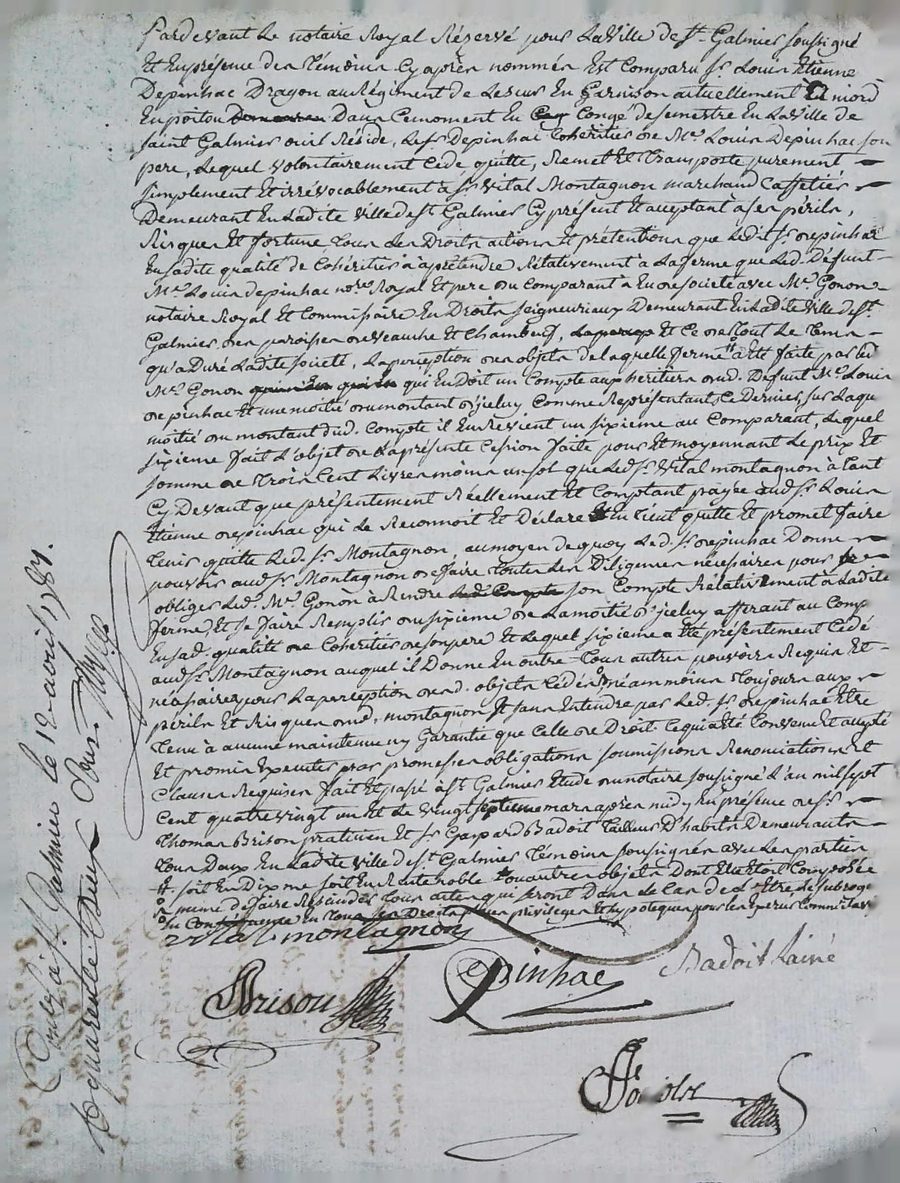 Pardevant Le notaire Royal Réservé pour La Ville de St. Galmier soussigné
Et En présence des témoins Cy après nommés Est Comparu Sr. Louis Etienne
Depinhac Dragon au Régiment de En Garnison actuellement à niord
En poitou Dans Ce moment En Congé de semestre En La Ville de
saint Galmier où il Réside, Led. sr. Depinhac Cohéritier de Me. Louis Depinhac son
pere, Lequel volontairement Cède quitte, Remet Et transporte purement
simplement Et irrévocablement à Sr. Vital Montagnon marchand Caffetier
Demeurant En Ladite Ville de St. Galmier Cy présent Et acceptant à ses périls,
Risques Et fortune tous Les Droits actions Et prétentions que Led. Sr. depinhac
En sadite qualité de Cohéritier a à prétendre Rélativement à La ferme que Led. Défunt
Me. Louis depinhac nore. Royal Et pere du Comparant a Eu de société avec Me. Gonon
notaire Royal Et Commissaire En Droits seigneuriaux Demeurant En Ladite Ville de St.
Galmier, des paroisses de veauche Et Chambeuf, Et Ce de tout Le tems
qu'a Duré Ladite société, La perception des objets de laquelle ferme # a été faite par led.
Me. Gonon qui En Doit un Compte aux héritiers dud. Défunt Me. Louis
de pinhac Et une moitié du montant d'jceluy Comme Représentant Ce Dernier, sur Laqu.
moitié du montant dud. Compte il En Revient un sixieme au Comparant, Lequel
sixieme fait L'objet de La présente Cession faite pour Et moyennant Le prix Et
somme de trois Cent Livres moins un sol que Led. Sr. Vital montagnon à tant
Cy Devant que présentement Réellement Et Comptant payée aud. Sr. Louis
Etienne depinhac qui Le Reconnoit Et Déclare En tient quitte Et promet faire
tenir quitte Led. Sr. Montagnon, au moyen de quoy Led. Sr. depinhac Donne
pouvoir aud. Sr. Montagnon de faire toutes Les Diligences nécessaires pour
obliger Led. Me. Gonon à Rendre son Compte Rélativement à Ladite
ferme, Et se faire Remplir du sixieme de La moitié d'jceluy afferant au Comp.
En sad. qualité de Cohéritier de son pere Et Lequel sixieme a été présentement Cédé
aud. Sr. Montagnon auquel il Donne En outre tous autres pouvoirs Requis Et
nécessaires pour La perception dud. objets Cédés néammoins toujours aux
périls Et Risques dud. montagnon Et sans Entendre par Led. Sr. depinhac Etre
tenu à aucune maintenue ny Garantie que Celle de Droit. Ce qui a été Convenu Et accepté
Et promis Executer par promesses obligations soumissions Renonciations Et
Clauses Requises fait Et passé à St. Galmier Etude du notaire soussigné L'an mil sept
Cent quatre vingt un Et Le vingt septieme mars après midy En présence de Srs.
Thomas Brison praticien Et Sr. Gaspard Badoit Tailleur D'habits Demeurants
tous Deux En Ladite Ville de St. Galmier témoins soussignés avec Les parties
# soit En Dixme soit En Rente noble ou autres objets Dont Elle Etoit Composée
même de faire Rescinder tous actes qui seront Dans le Cas de L'Etre Le subroge
En tous ses Droits, privileges Et hypoteques
vital montagnon
Depinhac
Badoit Lainé
Brison
Conlé à St. Galmier le 12 avril 1781.
R. quarente Deux Sous.